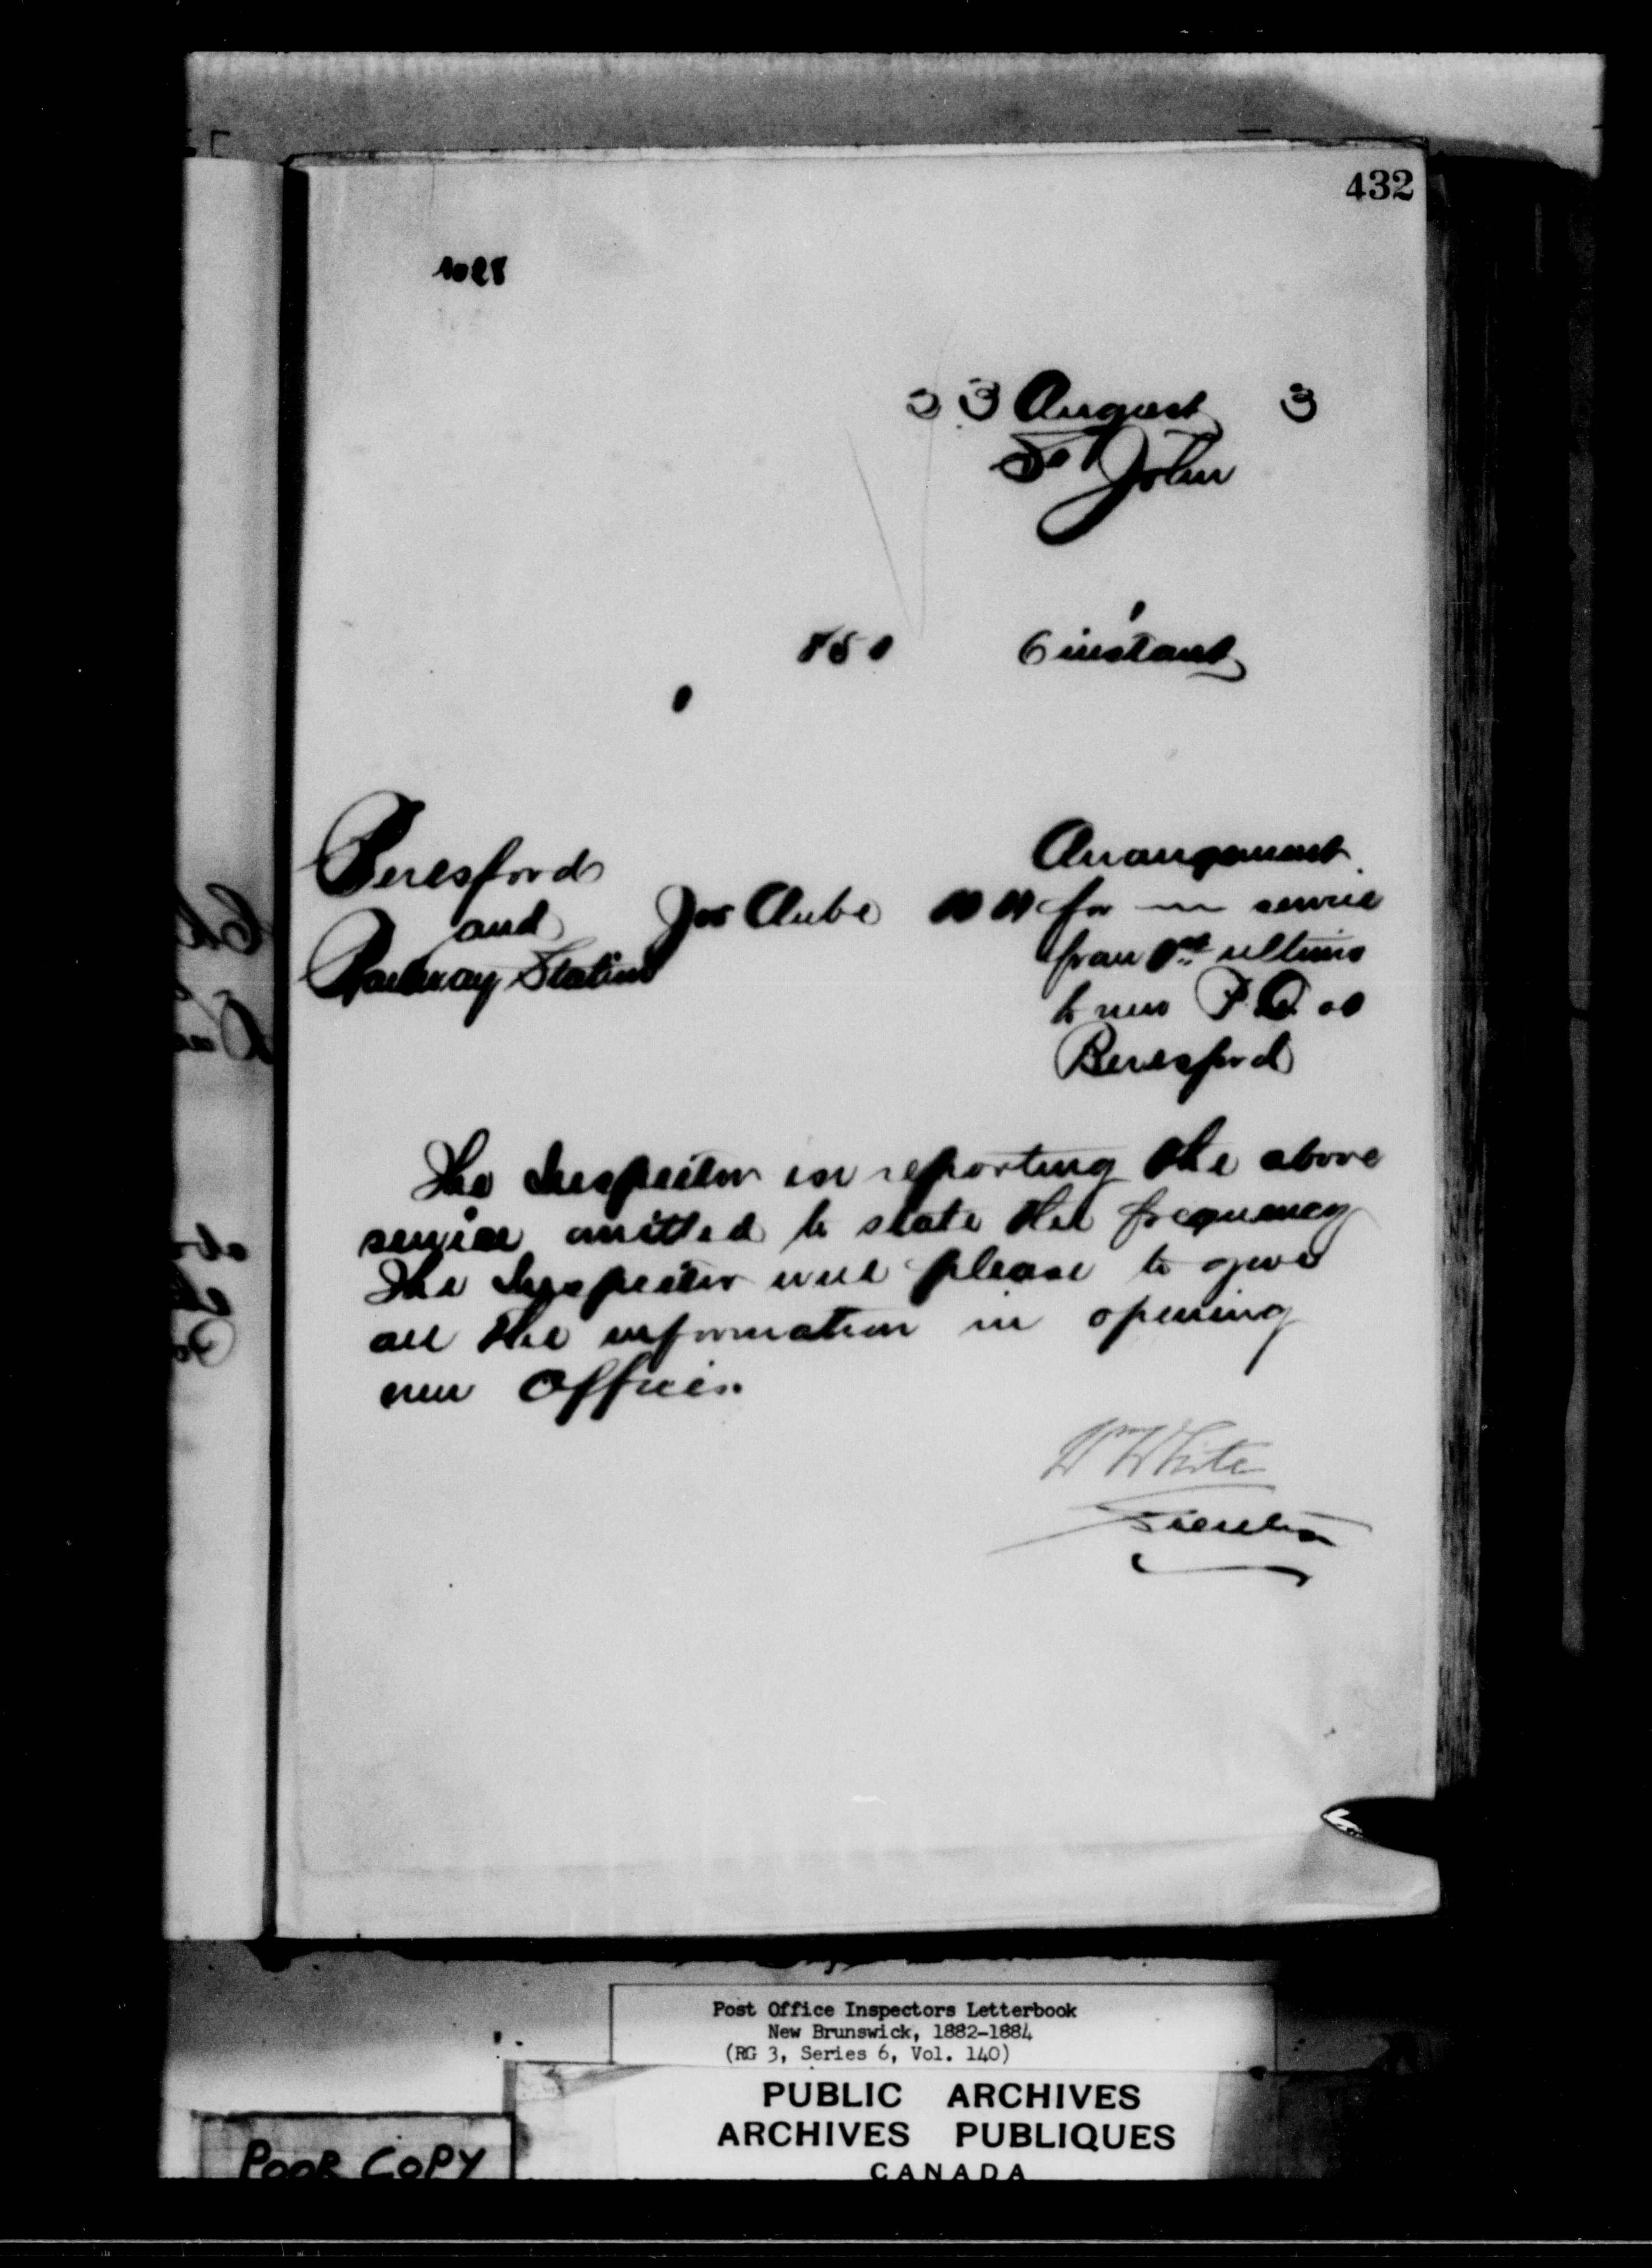 432
1028
23 August 3
St John
850 6 instant
Beresford
and
Railway Station
Jos Aube
Arrangement
for service
from 1st ultimo
to new P.O. at
Beresford
The Inspector in reporting the above
service omitted to state the frequency
The Inspector will please to give
all the information in opening
new Offices.
Wm White
Secretary
Post Office Inspectors Letterbook
New Brunswick, 1882-1884
(RG 3, Series 6, Vol. 140)
PUBLIC ARCHIVES
ARCHIVES PUBLIQUES
CANADA
POOR COPY